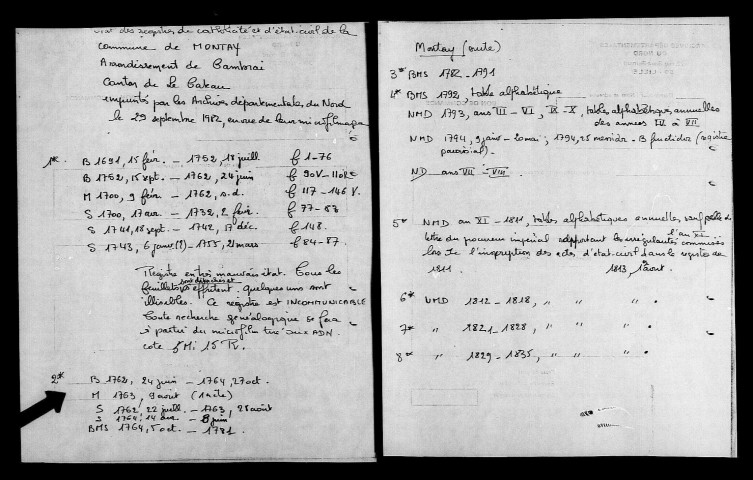 Etat des registres de catholicité et d'état-civil de la
commune de MONTAY
Arrondissement de Cambrai
Canton de Le Cateau
empruntés par les Archives départementales du Nord
le 29 septembre 1982, en vue de leur microfilmage
1* B 1691, 15 févr. - 1752, 18 juill f 1-76
B 1752, 15 sept. - 1762, 24 juin f 90V - 110R
M 1700, 9 févr. - 1762, s.d. f 117 - 146 V.
S 1700, 17 avr. - 1732, 2 févr. f 77-83
S 1741, 18 sept. - 1742, 17 déc. f 148.
S 1743, 6 janv. (?) - 1755, 21 mars f 84-87.
Registre en très mauvais état. Tous les
feuillets sont détachés et s'effritent, quelques uns sont
illisibles. Ce registre est INCOMMUNICABLE
Toute recherche généalogique se fera
à partir du microfilm tiré aux ADN
cote 5 Mi 15 R.
2* B 1762, 24 juin - 1764, 27 oct.
M 1763, 9 août (1 acte)
S 1762, 22 juill. - 1763, 28 août
S 1764, 14 avr. - 8 juin
BMS 1764, 5 oct. - 1781.
Montay (suite)
3* BMS 1782 - 1791
4* BMS 1792, table alphabétique
NMD 1793, ans III - VI, IX - X, tables alphabétiques annuelles
des années IV à VII
NMD 1794, 9 janv - 20 mai ; 1794, 25 messidor - 8 fructidor (registre
paroissial) -
ND ans VII - VIII
5* NMD an XI - 1811, tables alphabétiques annuelles, sauf pour
l'an XI
lettre du procureur impérial rapportant les irrégularités commises
lors de l'inscription des actes d'état-civil dans le registre de
1811. 1813 1 août.
6* NMD 1812 - 1818, " " " .
7* " 1821 - 1828, " " " .
8* " 1829 - 1835, " " " .